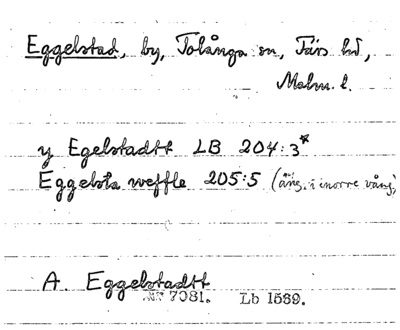 Eggelstad, by, Tolånga sn, Färs hd,
Malm. l.
y Egelstadtt LB 204:3*
Eggelsta weffle 205:5 (äng, i norre vång)
A. Eggelstadtt
7081. Lb 1569.